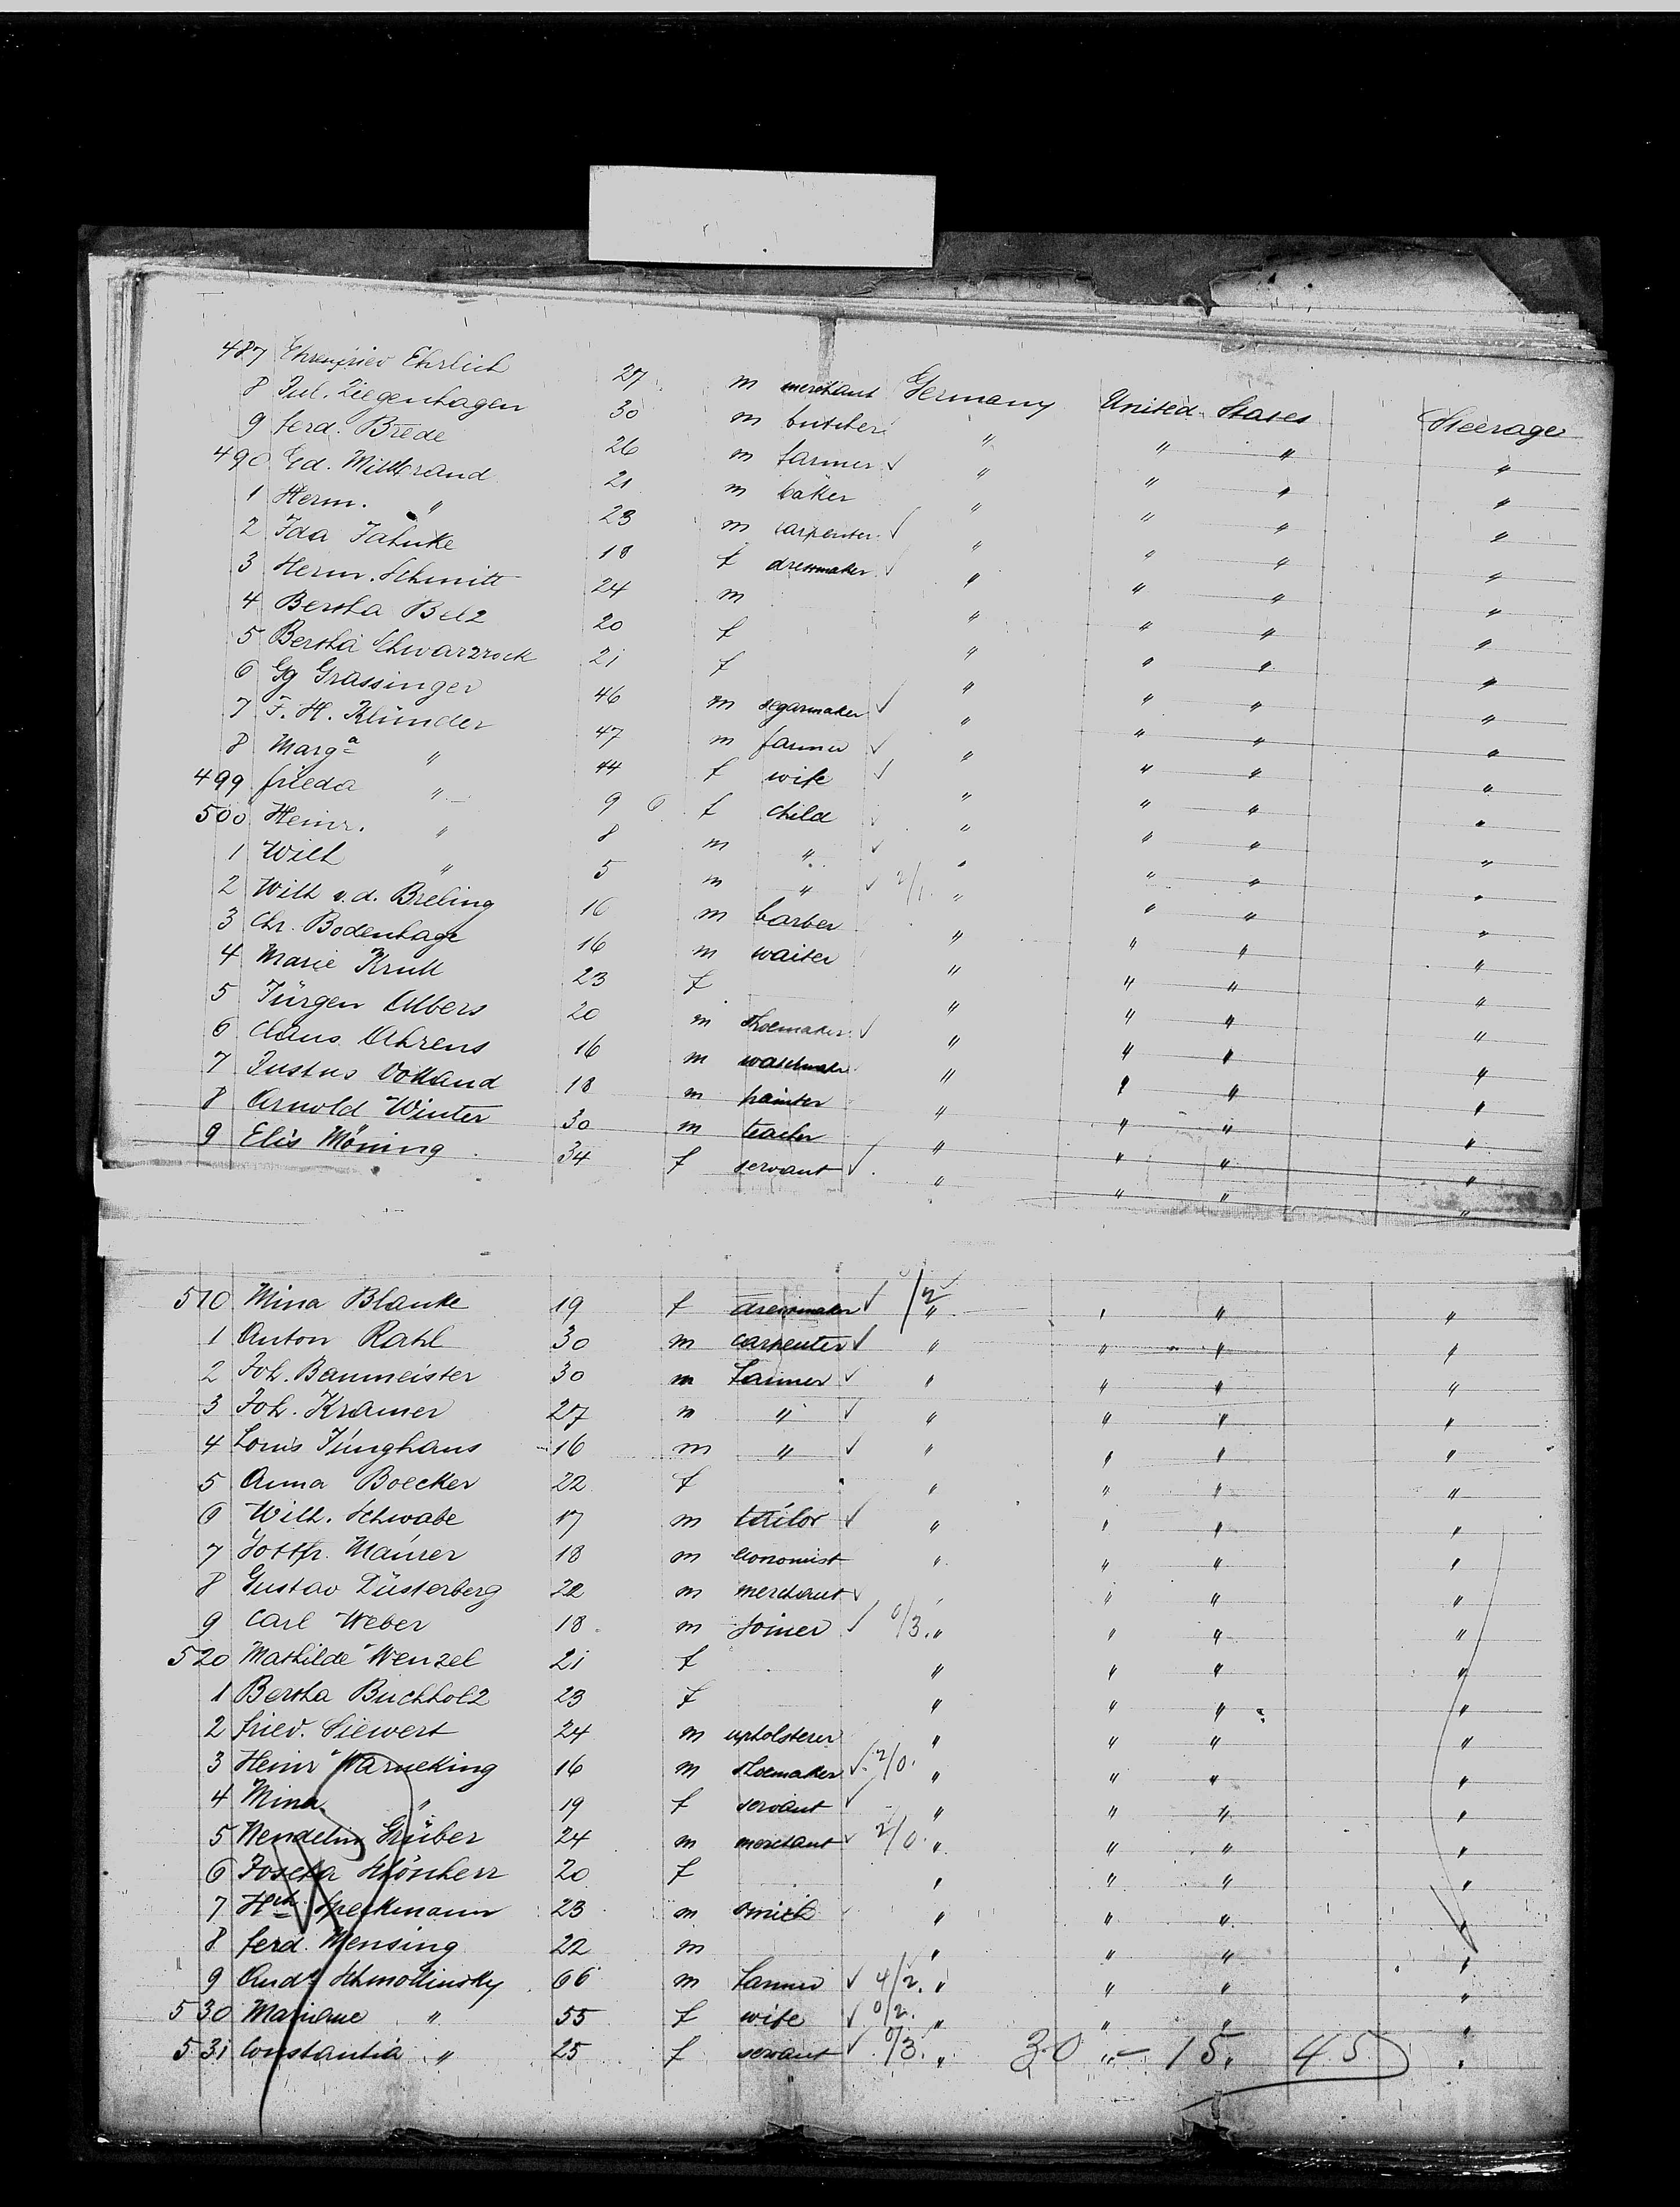 487 Ehrenfried Ehrlich 27 m merchant Germany United States Steerage
8 Jul. Ziegenhagen 30 m butcher " " " "
9 ferd. Brede 26 m farmer ✓ " " " "
490 Ed. Wildbrand 21 m baker " " " "
1 Herm. " 23 m carpenter ✓ " " " "
2 Ida Jahnke 18 f dressmaker ✓ " " " "
3 Herm. Schmitt 24 m " " " "
4 Bertha Belz 20 f " " " "
5 Bertha Schwarzrock 21 f " " " "
6 Gg Grassinger 46 m segarmaker ✓ " " " "
7 F. H. Klünder 47 m farmer ✓ " " " "
8 Marga " 44 f wife ✓ " " " "
499 frieda " 9 6 f child ✓ " " " "
500 Heinr. " 8 m " ✓ " " " "
1 Wilh " 5 m " ✓ 2/1. " " " "
2 Wilh v. d. Breling 16 m barber " " " "
3 Chr. Bodenhage 16 m waiter " " " "
4 Marie Krull 23 f " " " "
5 Jürgen Albers 20 m shoemaker ✓ " " " "
6 Claus Ahrens 16 m " " " "
7 Justus Volland 18 m painter " " " "
8 Arnold Winter 30 m teacher " " " "
9 Elis Möning 34 f servant ✓ " " " "
510 Mina Blanke 19 f dressmaker ✓ /2 " " " "
1 Anton Rahl 30 m carpenter ✓ " " " "
2 Joh. Baumeister 30 m farmer ✓ " " " "
3 Joh. Kramer 27 m " ✓ " " " "
4 Louis Junghans 16 m " ✓ " " " "
5 Anna Boecker 22 f " " " "
6 Wilh. Schwabe 17 m tailor ✓ " " " "
7 Gottfr. Maurer 18 m economist " " " "
8 Gustav Düsterberg 22 m merchant ✓ " " " "
9 Carl Weber 18 m joiner ✓ 0/3. " " " "
520 Mathilde Wenzel 21 f " " " "
1 Bertha Buchholz 23 f " " " "
2 fried. Siewert 24 m upholsterer " " " "
3 Heinr Warneking 16 m shoemaker ✓ 2/0. " " " "
4 Mina " 19 f servant ✓ " " " "
5 Wendelin Grüber 24 m merchant ✓ 2/0. " " " "
6 Josefa Schönherr 20 f " " " "
7 Hch. Speckmann 23 m smith " " " "
8 ferd. Mensing 22 m " " " "
9 Andr. Schmollinsky 66 m farmer ✓ 4/2. " " " "
530 Mariane " 55 f wife ✓ 0/2. " " " "
531 Constantia " 25 f servant ✓ 0/3. " " " "
30 - 15 45